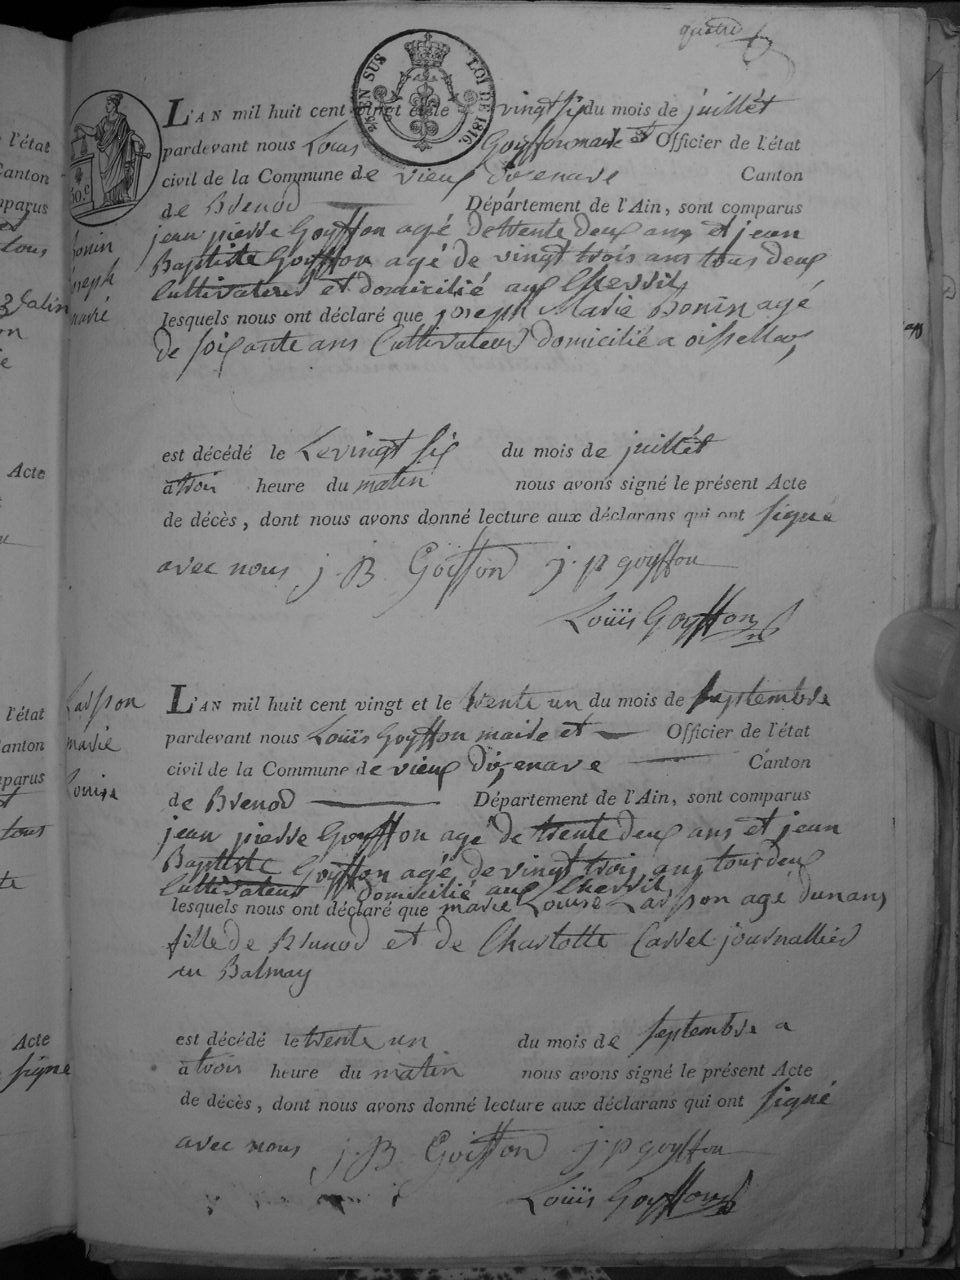 quatre
25 EN SUS
LOI DE 1816.
50.c
L'AN mil huit cent vingt et le vingt six du mois de juillet
pardevant nous Louis Goyffon maire et Officier de l'état
civil de la Commune de vieux disenave Canton
de Brenod Département de l'Ain, sont comparus
jean pierre Goyffon agé de trente deux ans et jean
Baptiste Goyffon agé de vingt trois ans tous deux
Cultivateurs et domicilié aux
lesquels nous ont déclaré que joseph Marie Bonin agé
de soixante ans Cultivateur domicilié a
Bonin
joseph
marié
est décédé le Le vingt six du mois de juillet
à trois heure du matin nous avons signé le présent Acte
de décès, dont nous avons donné lecture aux déclarans qui ont signé
avec nous j. B Goiffon j. p goyffon
Louis Goyffon
Larpon
marie
Louise
L'AN mil huit cent vingt et le trente un du mois de septembre
pardevant nous Louïs Goyffon maire et Officier de l'état
civil de la Commune de vieux disenave Canton
de Brenod Département de l'Ain, sont comparus
jean pierre Goyffon agé de trente deux ans et jean
Baptiste Goyffon agé de vingt trois ans tous deux
Cultivateurs domicilié aux
lesquels nous ont déclaré que marie Louise Larpon agé dun ans
fille de Brunod et de Charlotte Cassel journallier
en Balmay
est décédé le trente un du mois de septembre a
à trois heure du matin nous avons signé le présent Acte
de décès, dont nous avons donné lecture aux déclarans qui ont signé
avec nous j. B Goiffon j. p goyffon
Louïs Goyffon
l'état
Canton
mparus
tous
Acte
l'état
Canton
mparus
tous
Acte
signe